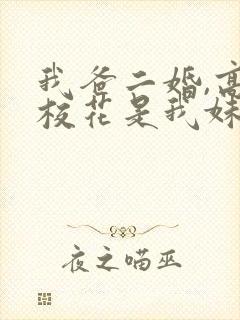 我爸二婚,高
校花是我妹
夜之喵巫